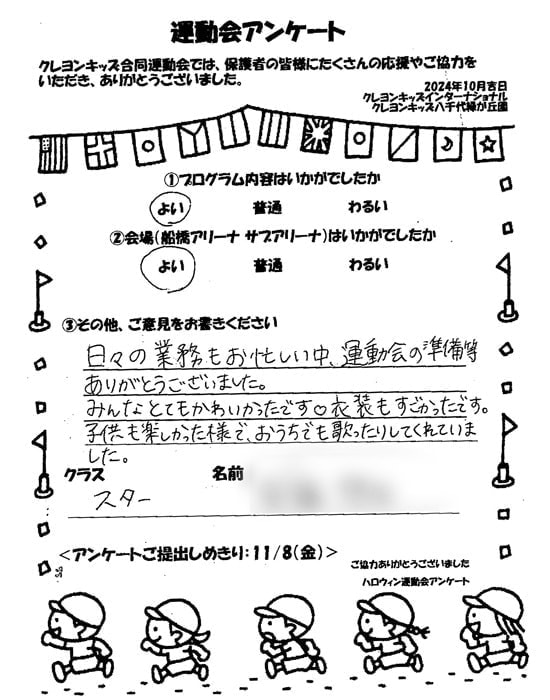 運動会アンケート
クレヨンキッズ合同運動会では、保護者の皆様にたくさんの応援やご協力を
いただき、ありがとうございました。
2024年10月吉日
クレヨンキッズインターナショナル
クレヨンキッズ八千代緑が丘園
①プログラム内容はいかがでしたか
よい 普通 わるい
②会場(船橋アリーナ サブアリーナ)はいかがでしたか
よい 普通 わるい
③その他、ご意見をお書きください
日々の業務もお忙しい中、運動会の準備等
ありがとうございました。
みんなとてもかわいかったです♡衣装もすごかったです。
子供も楽しかった様で、おうちでも歌ったりしてくれていま
した。
クラス 名前
スター
<アンケートご提出しめきり:11/8(金)>
ご協力ありがとうございました
ハロウィン運動会アンケート